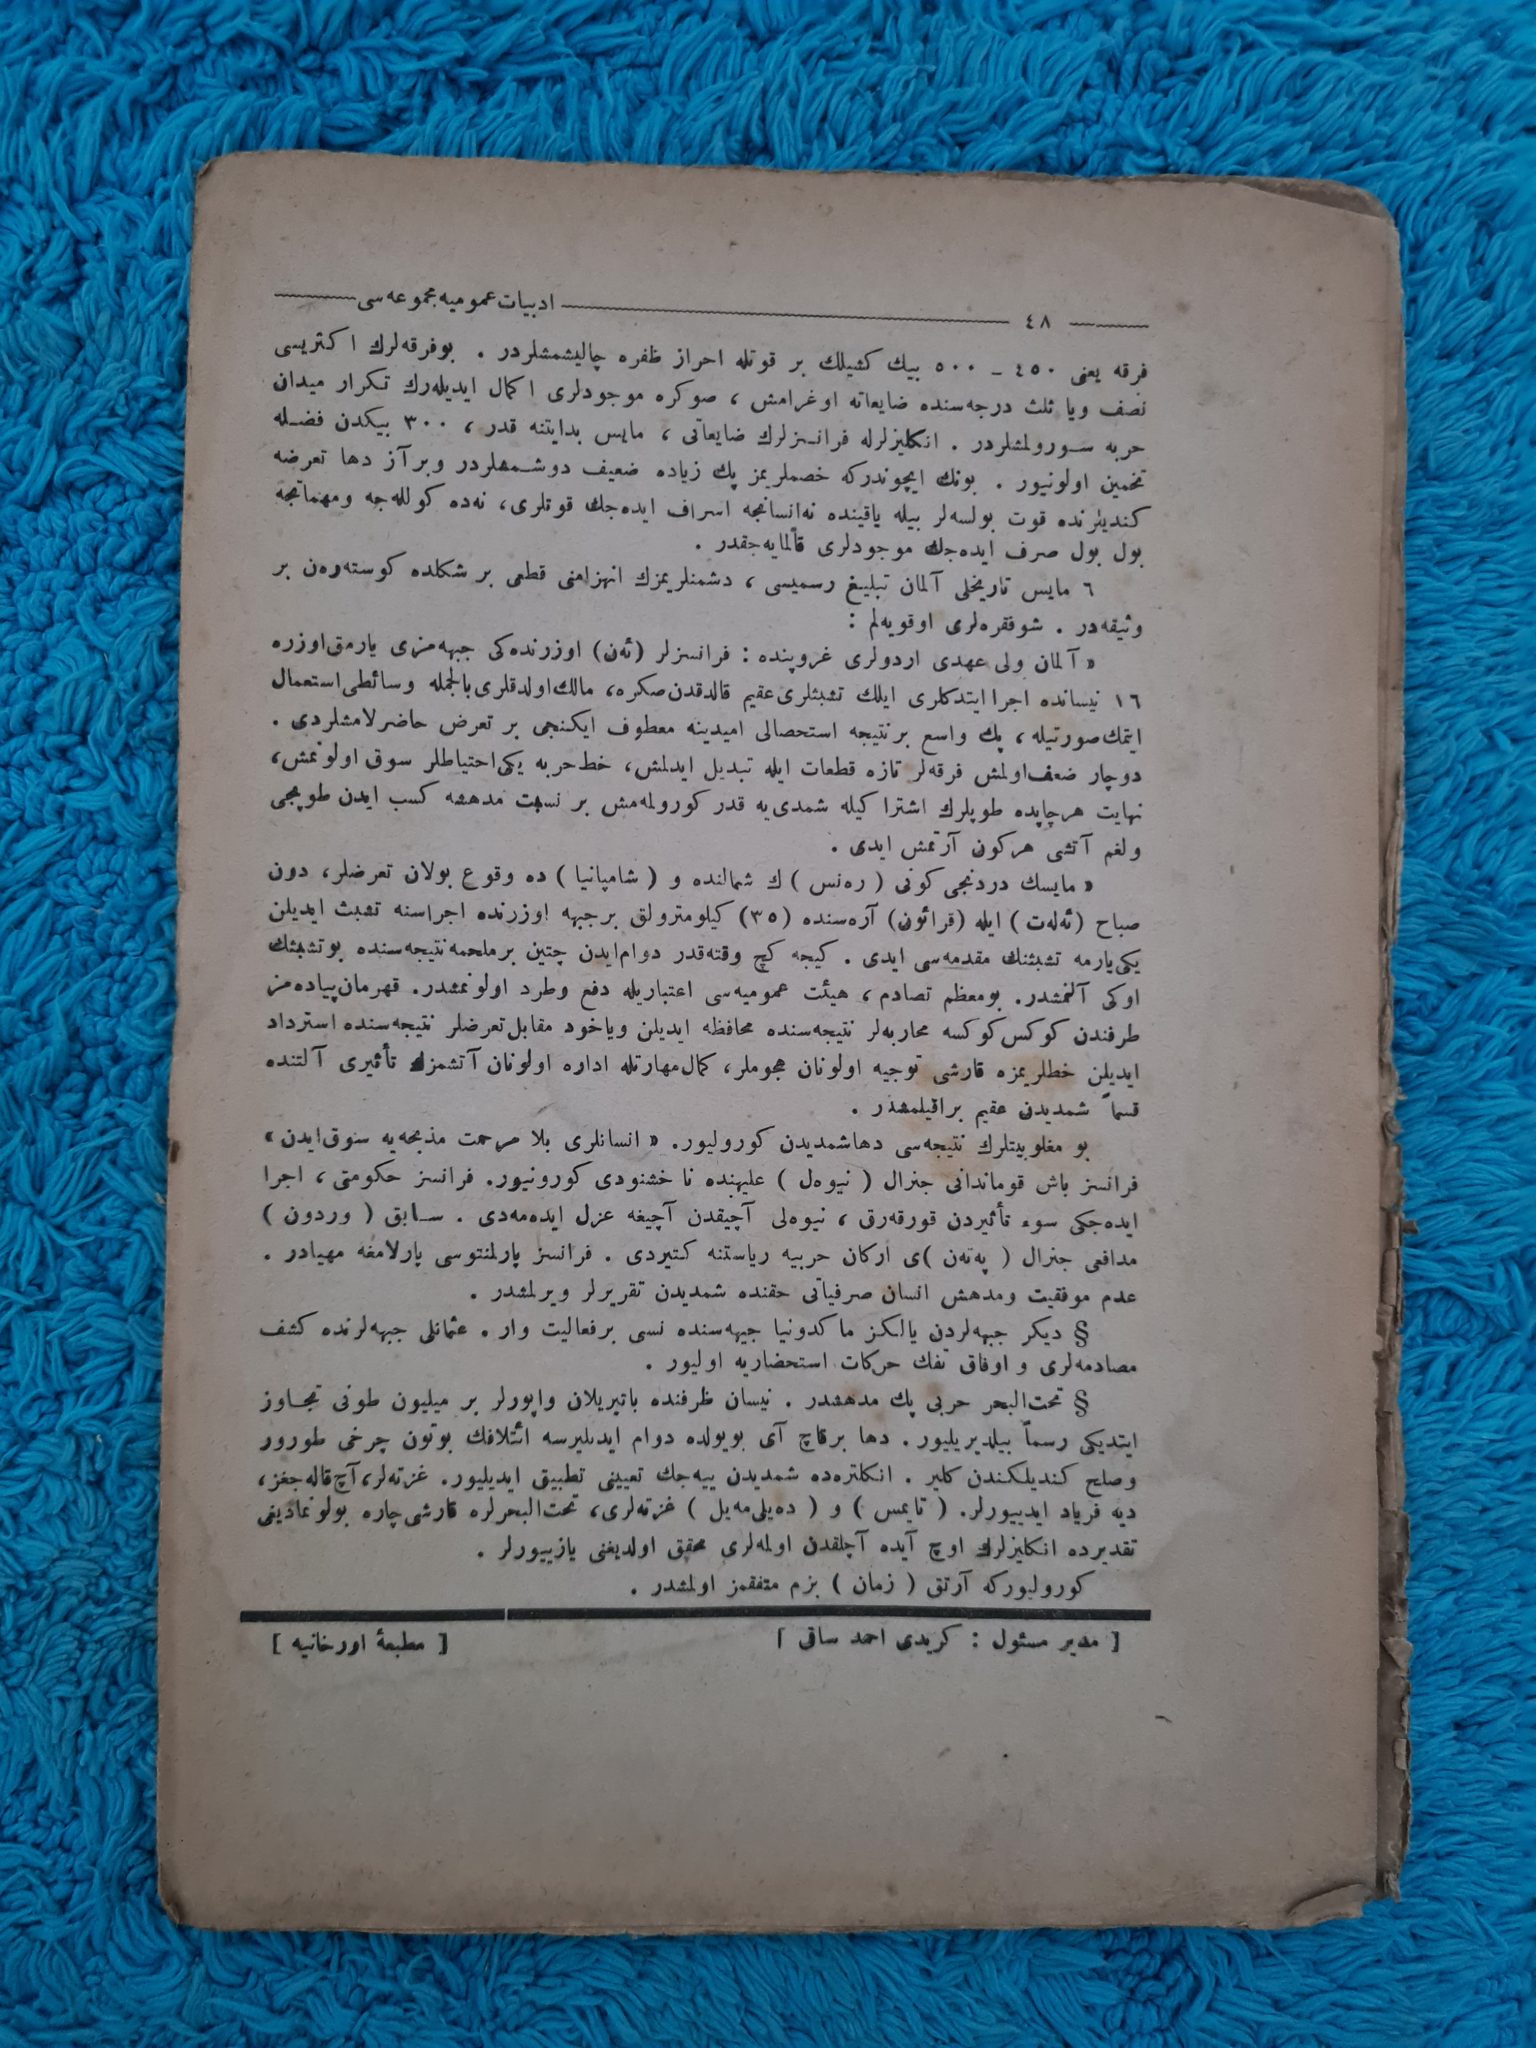 ٤٨ ادبیات عمومیه مجموعه‌سی
فرقه یعنی ٤٥٠ ـ ٥٠٠ بیك كشیلك بر قوتله احراز ظفره چالیشمشلردر . بوفرقه‌لرك اكثریسی
نصف ویا ثلث درجه‌سنده ضایعاته اوغرامش ، صوكره موجودلری اكمال ایدیله‌رك تكرار میدان
حربه سورولمشلردر . انكلیزلرله فرانسزلرك ضایعاتی ، مایس بدایتنه قدر ، ٣٠٠ بیكدن فضله
تخمین اولونیور . بونك ایچوندركه خصملریمز پك زیاده ضعیف دوشمشلردر وبر آز دها تعرضه
كندیلرنده قوت بولسه‌لر بیله یاقینده نه‌انسانجه اسراف ایده‌جك قوتلری، نه‌ده كولله‌جه ومهماتجه
بول بول صرف ایده‌جك موجودلری قالمایه‌جقدر .
٦ مایس تاریخلی آلمان تبلیغ رسمیسی ، دشمنلریمزك انهزامنی قطعی بر شكلده كوسته‌رەن بر
وثیقه‌در . شوفقره‌لری اوقویه‌لم :
« آلمان ولی عهدی اردولری غروپنده : فرانسزلر (ئەن) اوزرنده‌كی جبهه‌مزی یارمق‌اوزره
١٦ نیسانده اجرا ایتدكلری ایلك تشبثلری‌عقیم قالدقدن‌صكره، مالك‌اولدقلری‌بالجمله وسائطی‌استعمال
ایتمك‌صورتیله ، پك واسع برنتیجه استحصالی امیدینه معطوف ایكنجی بر تعرض حاضرلامشلردی .
دوچار ضعف‌اولمش فرقه‌لر تازه قطعات ایله تبدیل ایدلمش، خط‌حربه یكی‌احتیاطلر سوق اولونمش،
نهایت هرچاپده طوپلرك اشتراكیله شمدی‌یه قدر كورولمه‌مش بر نسبت مدهشه كسب ایدن طوپجی
ولغم آتشی هركون آرتمش ایدی .
« مایسك دردنجی كونی ( ره‌نس ) ك شمالنده و ( شامپانیا ) ده وقوع بولان تعرضلر، دون
صباح (ئەلەت ) ایله (قرائون) آره‌سنده (٣٥) كیلومترولق برجبهه اوزرنده اجراسنه تشبث ایدیلن
یكی‌یارمه تشبثنك مقدمه‌سی ایدی . كیجه كچ وقته‌قدر دوام‌ایدن چتین برملحمه‌نتیجه‌سنده بوتشبثك
اوكی آلنمشدر. بومعظم تصادم ، هیئت عمومیه‌سی اعتباریله دفع وطرد اولونمشدر. قهرمان‌پیاده‌مز
طرفندن كوكس‌كوكسه محاربه‌لر نتیجه‌سنده محافظه ایدیلن ویاخود مقابل‌تعرضلر نتیجه‌سنده استرداد
ایدیلن خطلریمزه قارشی توجیه اولونان هجوملر، كمال‌مهارتله اداره اولونان آتشمزك تأثیری آلتنده
قسماً شمدیدن عقیم براقیلمشدر .
بو مغلوبیتلرك نتیجه‌سی دهاشمدیدن كورولیور. « انسانلری بلا مرحمت مذبحه‌یه سوق‌ایدن »
فرانسز باش قوماندانی جنرال ( نیوه‌ل ) علیهنده ناخشنودی كورونیور. فرانسز حكومتی ، اجرا
ایده‌جكی سوء تأثیردن قورقه‌رق ، نیوه‌لی آچیقدن آچیغه عزل ایده‌مه‌دی . سابق ( وردون )
مدافعی جنرال ( په‌تەن )ی اركان حربیه ریاستنه كتیردی . فرانسز پارلمنتوسی پارلامغه مهیادر .
عدم موفقیت ومدهش انسان صرفیاتی حقنده شمدیدن تقریرلر ویرلمشدر .
§ دیكر جبهه‌لردن یالكز ماكدونیا جیهه‌سنده نسبی برفعالیت وار . عثمانلی جبهه‌لرنده كشف
مصادمه‌لری و اوفاق تفك حركات استحضاریه اولیور .
§ تحت‌البحر حربی پك مدهشدر . نیسان ظرفنده باتیریلان واپورلر بر میلیون طونی تجاوز
ایتدیكی رسماً بیلدیریلیور . دها برقاچ آی بویولده دوام ایدیلیرسه ائتلافك بوتون چرخی طورور
وصلح كندیلكندن كلیر . انكلتره‌ده شمدیدن ییه‌جك تعیینی تطبیق ایدیلیور. غزته‌لر، آچ‌قاله‌جغز،
دیه فریاد ایدییورلر. ( تایمس ) و ( ده‌یلی‌مه‌یل ) غزته‌لری، تحت‌البحرلره قارشی‌چاره بولونمادیغی
تقدیرده انكلیزلرك اوچ آیده آچلقدن اولمه‌لری محقق اولدیغنی یازییورلر .
كورولیوركه آرتق ( زمان ) بزم متفقمز اولمشدر .
[ مدیر مسئول : كریدی احمد ساقی ] [ مطبعۀ اورخانیه ]